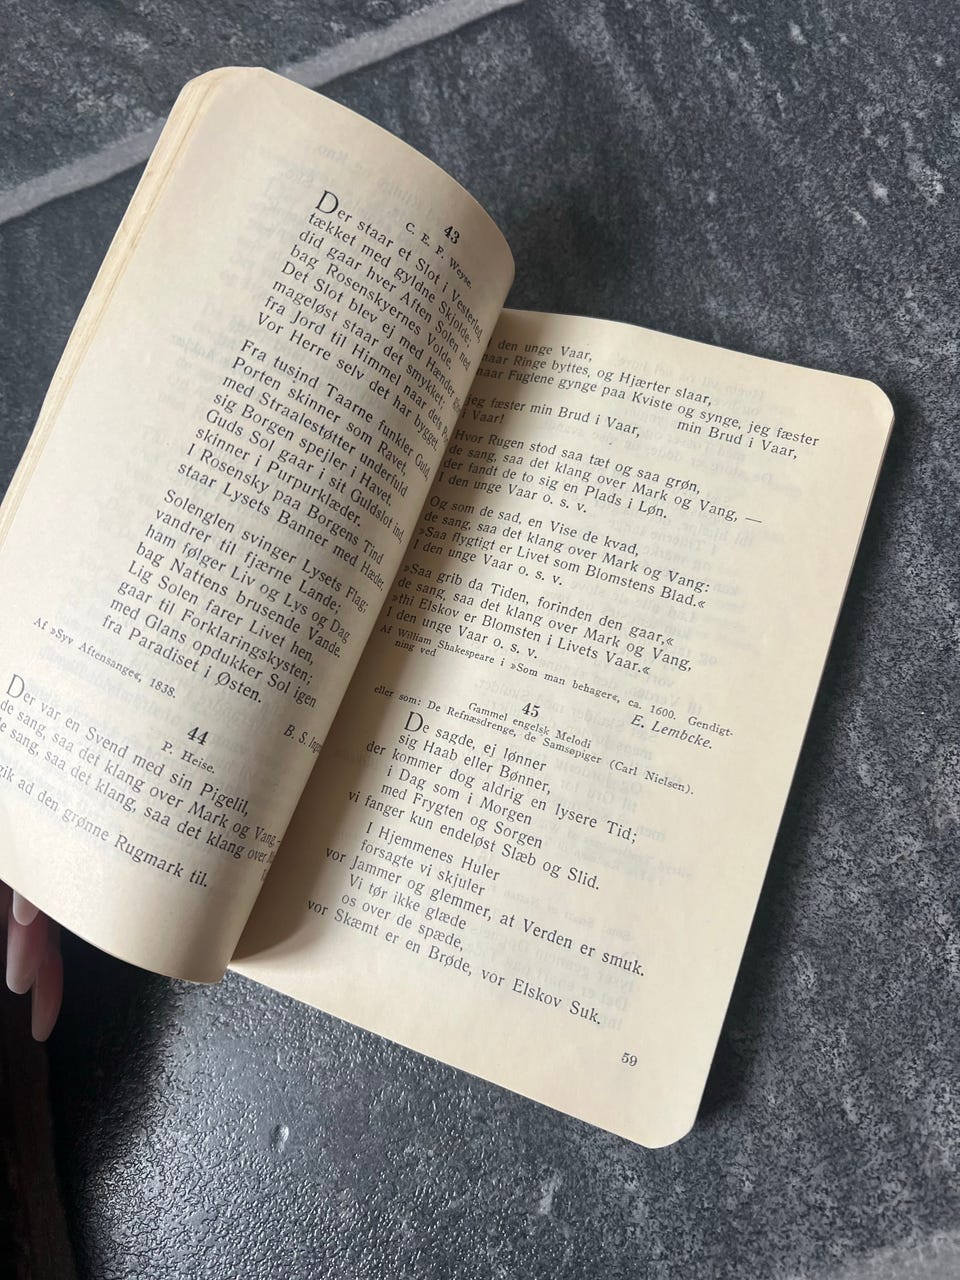 43
C. E. F. Weyse.
Der staar et Slot i Vesterled,
tækket med gyldne Skjolde;
did gaar hver Aften Solen ned
bag Rosenskyernes Volde.
Det Slot blev ej med Hænder
mageløst staar det smykket;
fra Jord til Himmel naar dets
Vor Herre selv det har bygget.
Fra tusind Taarne funkler Guld,
Porten skinner som Ravet,
med Straalestøtter underfuld
sig Borgen spejler i Havet.
Guds Sol gaar i sit Guldslot ind,
skinner i Purpurklæder.
I Rosensky paa Borgens Tind
staar Lysets Banner med Hæder.
Solenglen svinger Lysets Flag;
vandrer til fjærne Lande;
ham følger Liv og Lys og Dag
bag Nattens brusende Vande.
Lig Solen farer Livet hen,
gaar til Forklaringskysten;
med Glans opdukker Sol igen
fra Paradiset i Østen.
Af »Syv Aftensange«, 1838.
B. S.
44
P. Heise.
Der var en Svend med sin Pigelil,
de sang, saa det klang over Mark og Vang,
sang, saa det klang, saa det klang over
gik ad den grønne Rugmark til.
den unge Vaar,
naar Ringe byttes, og Hjærter slaar,
naar Fuglene gynge paa Kviste og synge, jeg fæster
min Brud i Vaar,
jeg fæster min Brud i Vaar,
i Vaar!
Hvor Rugen stod saa tæt og saa grøn,
de sang, saa det klang over Mark og Vang, —
der fandt de to sig en Plads i Løn.
I den unge Vaar o. s. v.
Og som de sad, en Vise de kvad,
de sang, saa det klang over Mark og Vang:
»Saa flygtigt er Livet som Blomstens Blad.«
I den unge Vaar o. s. v.
»Saa grib da Tiden, forinden den gaar,«
de sang, saa det klang over Mark og Vang,
»thi Elskov er Blomsten i Livets Vaar.«
I den unge Vaar o. s. v.
Af William Shakespeare i »Som man behager«, ca. 1600. Gendigt-
ning ved
E. Lembcke.
45
Gammel engelsk Melodi
eller som: De Refnæsdrenge, de Samsøpiger (Carl Nielsen).
De sagde, ej lønner
sig Haab eller Bønner,
der kommer dog aldrig en lysere Tid;
i Dag som i Morgen
med Frygten og Sorgen
vi fanger kun endeløst Slæb og Slid.
I Hjemmenes Huler
forsagte vi skjuler
vor Jammer og glemmer, at Verden er smuk.
Vi tør ikke glæde
os over de spæde,
vor Skæmt er en Brøde, vor Elskov Suk.
59